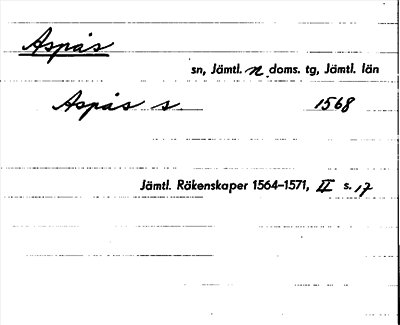 Aspås
sn, Jämtl. n. doms. tg, Jämtl. län
Aspås s. 1568
Jämtl. Räkenskaper 1564–1571, II s. 17